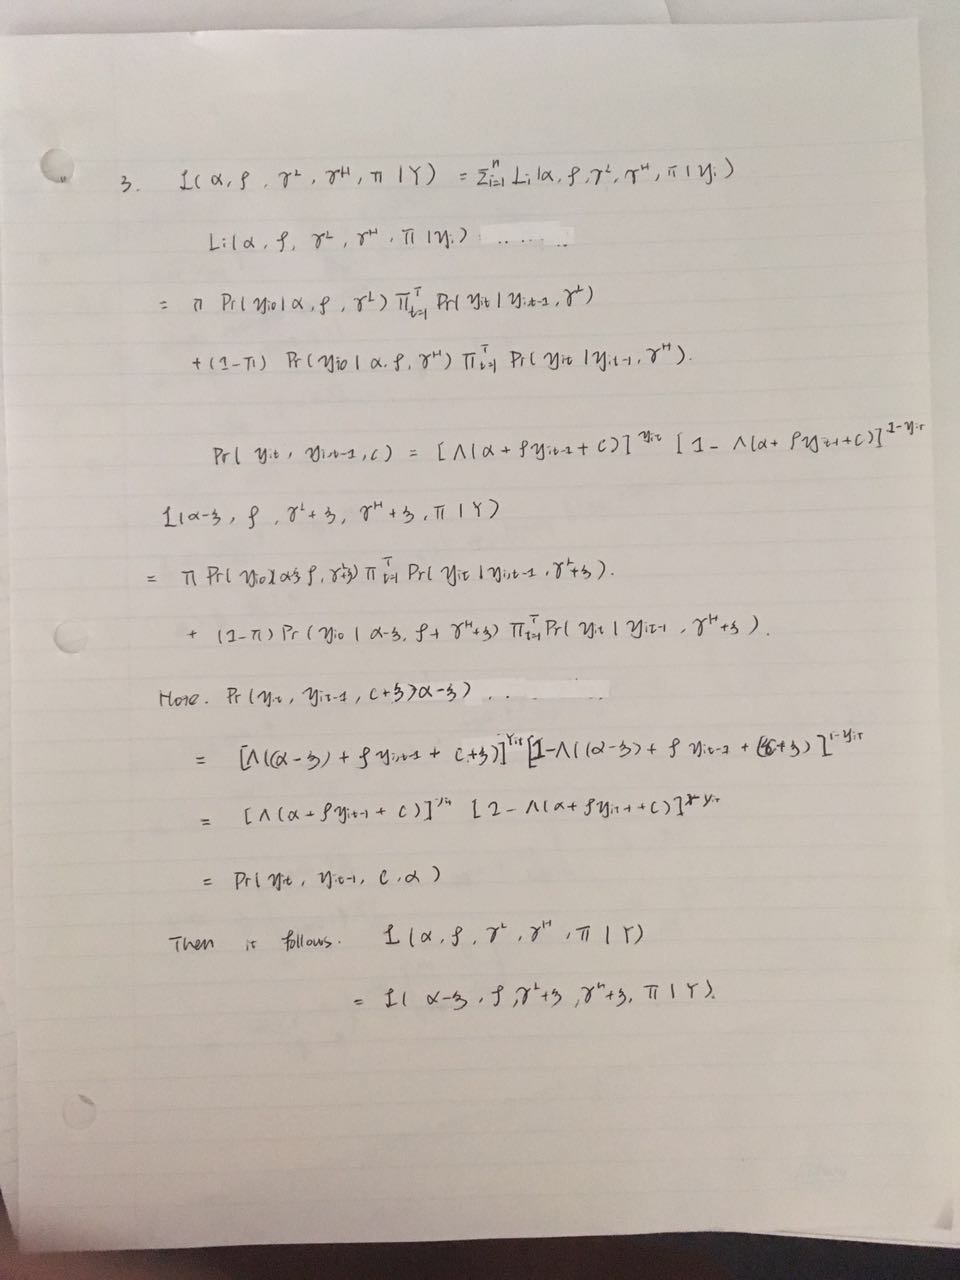 3. L(α, ρ, γᴸ, γᴴ, π | Y) = Σⁿᵢ₌₁ Lᵢ(α, ρ, γᴸ, γᴴ, π | yᵢ)
Lᵢ(α, ρ, γᴸ, γᴴ, π | yᵢ)
= π Pr(yᵢ₀ | α, ρ, γᴸ) Πᵀₜ₌₁ Pr(yᵢₜ | yᵢ,ₜ₋₁, γᴸ)
+ (1-π) Pr(yᵢ₀ | α, ρ, γᴴ) Πᵀₜ₌₁ Pr(yᵢₜ | yᵢₜ₋₁, γᴴ).
Pr(yᵢₜ, yᵢ,ₜ₋₁, c) = [Λ(α + ρyᵢₜ₋₁ + c)]^yᵢₜ [1 - Λ(α + ρyᵢₜ₋₁ + c)]^1-yᵢₜ
L(α-3, ρ, γᴸ+3, γᴴ+3, π | Y)
= π Pr(yᵢ₀ | α-3, ρ, γᴸ+3) Πᵀₜ₌₁ Pr(yᵢₜ | yᵢ,ₜ₋₁, γᴸ+3).
+ (1-π) Pr(yᵢ₀ | α-3, ρ+ γᴴ+3) Πᵀₜ₌₁ Pr(yᵢₜ | yᵢₜ₋₁, γᴴ+3).
Here. Pr(yᵢₜ, yᵢₜ₋₁, c+3, α-3)
= [Λ((α-3) + ρyᵢₜ₋₁ + c+3)]^yᵢₜ [1-Λ((α-3) + ρ yᵢₜ₋₁ + (c+3)]^1-yᵢₜ
= [Λ(α + ρyᵢₜ₋₁ + c)]^yᵢₜ [1 - Λ(α + ρyᵢₜ₋₁ + c)]^1-yᵢₜ
= Pr(yᵢₜ, yᵢₜ₋₁, c, α)
Then it follows. L(α, ρ, γᴸ, γᴴ, π | Y)
= L(α-3, ρ, γᴸ+3, γᴴ+3, π | Y).